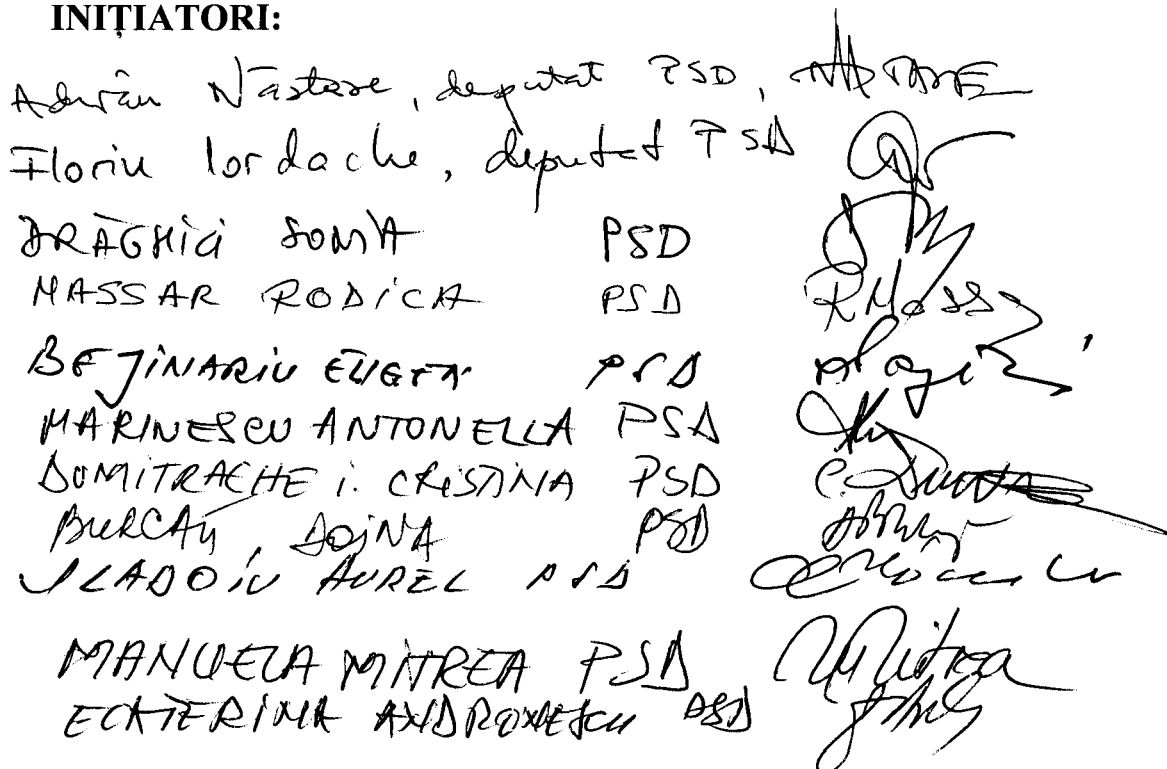 INIȚIATORI:
Adrian Năstase, deputat PSD, NĂSTASE
Florin Iordache, deputat PSD
DRĂGHICI SONIA PSD
MASSAR RODICA PSD R Mass
BEJINARIU EUGEN PSD
MARINESCU ANTONELLA PSD
DUMITRACHE I. CRISTINA PSD
BURCĂU DOINA PSD
VLĂDOIU AUREL PSD
MANUELA MITREA PSD MMitrea
ECATERINA ANDRONESCU PSD